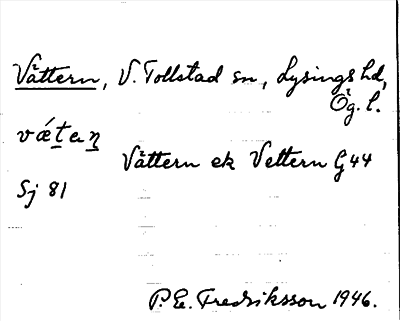 Vättern, V. Tollstad sn, Lysings hd,
Ög. l.
vǽtaṇ
Vättern ek Vettern G44
Sj 81
P. E. Fredriksson 1946.